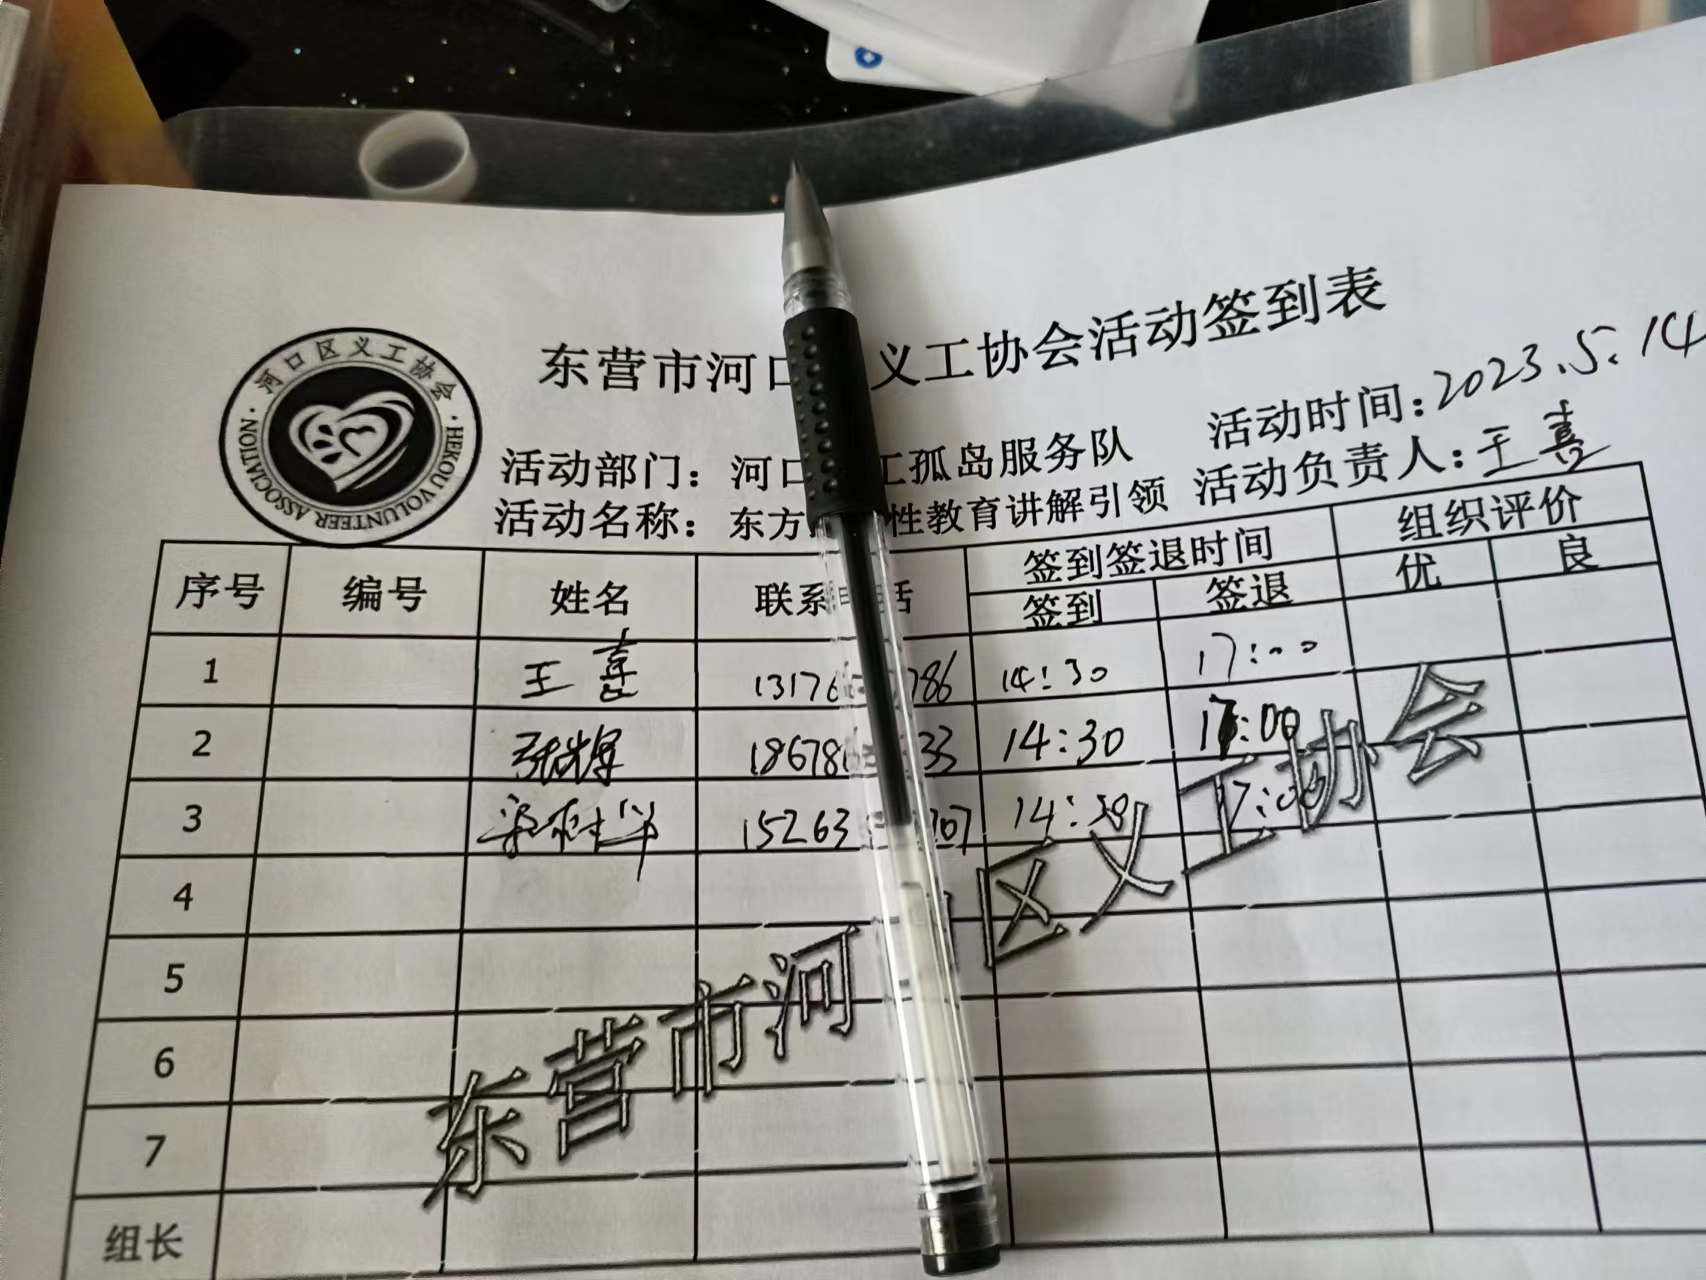 河口区义工协会
HEKOU VOLUNTEER ASSOCIATION
东营市河口 义工协会活动签到表
活动时间：2023.5.14
活动部门：河口 工孤岛服务队
活动负责人：王喜
活动名称：东方 性教育讲解引领
序号 编号 姓名 联系电话 签到签退时间 组织评价
签到 签退 优 良
1 王喜 13176 786 14:30 17:00
2 张辉 18678 33 14:30 17:00
3 15263 207 14:30 17:00
4
5
6
7
组长
东营市河口区义工协会